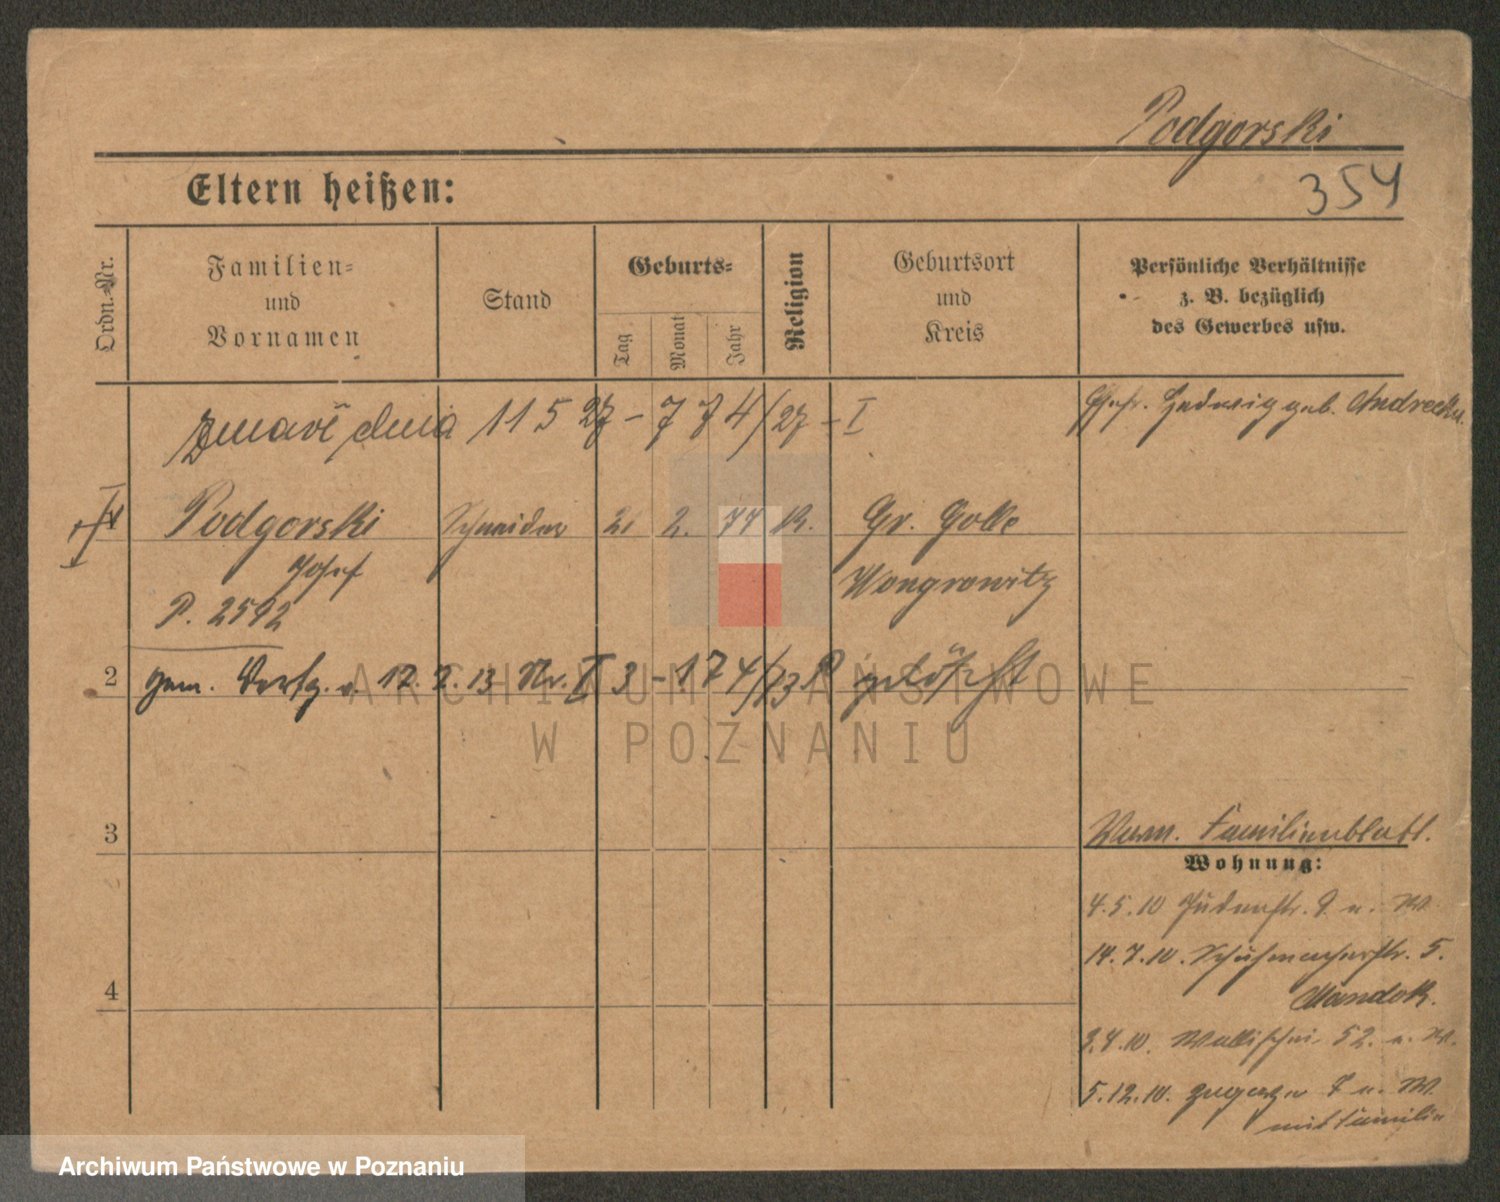 Podgorski
354
Eltern heißen:
Ordn.-Nr.
Familien-
und
Vornamen
Stand
Geburts-
Tag
Monat
Jahr
Religion
Geburtsort
und
Kreis
Persönliche Verhältnisse
z. B. bezüglich
des Gewerbes usw.
zmarł dnia 11 5 27 - 774/27 - I
Ehefr. Hedwig geb. Andrecka.
Podgorski Schneider 21 2. 77 K. Gr. Golle
Josef Wongrowitz
P. 2592
2 gem. Verfg. v. 12 2. 13 Nr. I 3 - 174/13 P gelöscht
ARCHIWUM PAŃSTWOWE
W POZNANIU
3
Verm. Familienblatt.
Wohnung:
4.5.10 Judenstr. 9 u. W
14.7.10. Schuhmacherstr. 5.
Mandok.
4
Wallischei 52. u. W.
5.12.10. u. W
mit Familie
Archiwum Państwowe w Poznaniu